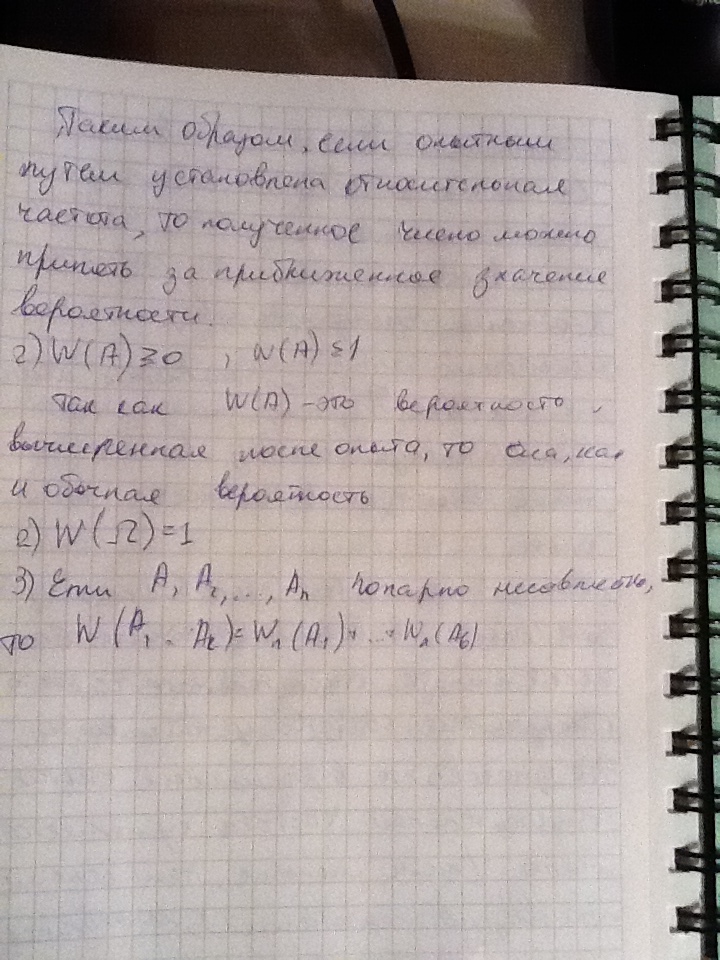 Таким образом, если опытным
путём установлена относительная
частота, то полученное число можно
принять за приближенное значение
вероятности.
2) W(A)≥0 , W(A)≤1
так как W(A) - это вероятность,
вычисленная после опыта, то она, как
и обычная вероятность
2) W(Ω)=1
3) Если A, A₂, ..., Aₙ попарно несовместны,
то W(A₁ ... A₂)= Wₙ(A₁)+ ... + Wₙ(